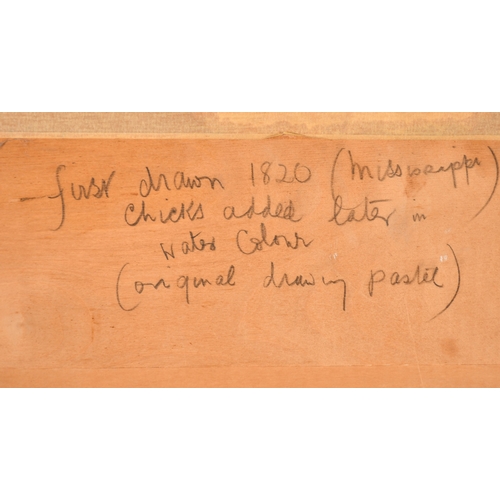 first drawn 1820 (Mississippi)
chicks added later in
water colour
(original drawing pastel)